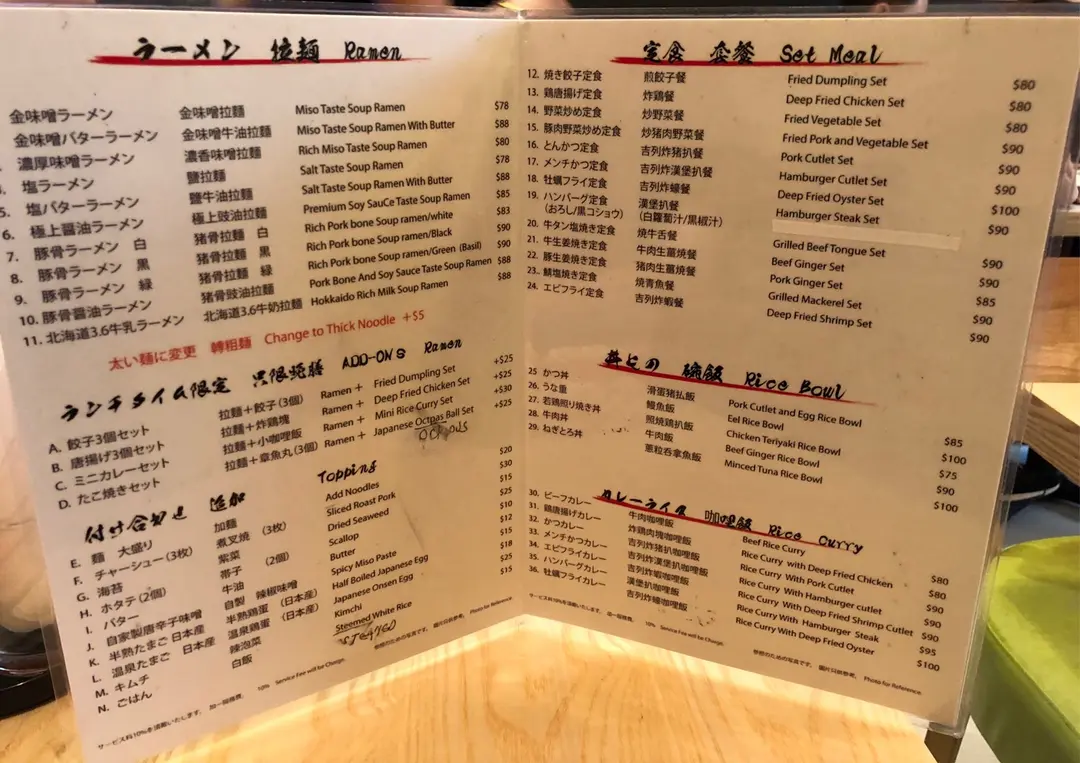 ラーメン 拉麺 Ramen
金味噌ラーメン 金味噌拉麺 Miso Taste Soup Ramen $78
金味噌バターラーメン 金味噌牛油拉麺 Miso Taste Soup Ramen With Butter $88
濃厚味噌ラーメン 濃香味噌拉麺 Rich Miso Taste Soup Ramen $80
塩ラーメン 鹽拉麺 Salt Taste Soup Ramen $78
5. 塩バターラーメン 鹽牛油拉麺 Salt Taste Soup Ramen With Butter $88
6. 極上醤油ラーメン 極上豉油拉麺 Premium Soy SauCe Taste Soup Ramen $85
7. 豚骨ラーメン 白 猪骨拉麺 白 Rich Pork bone Soup ramen/white $83
8. 豚骨ラーメン 黒 猪骨拉麺 黒 Rich Pork bone Soup ramen/Black $90
9. 豚骨ラーメン 緑 猪骨拉麺 緑 Rich Pork bone Soup ramen/Green (Basil) $90
10. 豚骨醤油ラーメン 猪骨豉油拉麺 Pork Bone And Soy Sauce Taste Soup Ramen $88
11. 北海道3.6牛乳ラーメン 北海道3.6牛奶拉麺 Hokkaido Rich Milk Soup Ramen $88
太い麺に変更 轉粗麺 Change to Thick Noodle +$5
ランチタイム限定 只限晩膳 ADD-ONS Ramen
A. 餃子3個セット 拉麺+餃子(3個) Ramen + Fried Dumpling Set +$25
B. 唐揚げ3個セット 拉麺+炸鶏塊 Ramen + Deep Fried Chicken Set +$25
C. ミニカレーセット 拉麺+小咖喱飯 Ramen + Mini Rice Curry Set +$30
D. たこ焼きセット 拉麺+章魚丸(3個) Ramen + Japanese Octpas Ball Set +$25
付け合わせ 追加 Topping
E. 麺 大盛り 加麺 Add Noodles $20
F. チャーシュー(3枚) 煮叉焼 (3枚) Sliced Roast Pork $30
G. 海苔 紫菜 Dried Seaweed $15
H. ホタテ(2個) 帯子 (2個) Scallop $25
I. バター 牛油 Butter $10
自家製唐辛子味噌 自製 辣椒味噌 Spicy Miso Paste $12
K. 半熟たまご 日本産 半熟鶏蛋 (日本産) Half Boiled Japanese Egg $15
L. 温泉たまご 日本産 温泉鶏蛋 (日本産) Japanese Onsen Egg $18
M. キムチ 辣泡菜 Kimchi $25
N. ごはん 白飯 Steemed White Rice $15
サービス料10%を頂戴いたします。 加一服務費。 10% Service Fee will be Charge. 参照のための写真です。 圖片只供參考。 Photo for Reference.
定食 套餐 Set Meal
12. 焼き餃子定食 煎餃子餐 Fried Dumpling Set $80
13. 鶏唐揚げ定食 炸鶏餐 Deep Fried Chicken Set $80
14. 野菜炒め定食 炒野菜餐 Fried Vegetable Set $80
15. 豚肉野菜炒め定食 炒猪肉野菜餐 Fried Pork and Vegetable Set
16. とんかつ定食 吉列炸猪扒餐 Pork Cutlet Set $90
17. メンチかつ定食 吉列炸漢堡扒餐 Hamburger Cutlet Set $90
18. 牡蠣フライ定食 吉列炸蠔餐 Deep Fried Oyster Set $100
19. ハンバーグ定食 漢堡扒餐 Hamburger Steak Set $90
(おろし/黒コショウ) (白蘿蔔汁/黒椒汁)
20. 牛タン塩焼き定食 焼牛舌餐 Grilled Beef Tongue Set $90
21. 牛生姜焼き定食 牛肉生薑燒餐 Beef Ginger Set $90
22. 豚生姜焼き定食 猪肉生薑燒餐 Pork Ginger Set $85
23. 鯖塩焼き定食 焼青魚餐 Grilled Mackerel Set $90
24. エビフライ定食 吉列炸蝦餐 Deep Fried Shrimp Set $90
丼もの 碗飯 Rice Bowl
25 かつ丼 滑蛋猪扒飯 Pork Cutlet and Egg Rice Bowl $85
26. うな重 鰻魚飯 Eel Rice Bowl $100
27. 若鶏照り焼き丼 照燒鶏扒飯 Chicken Teriyaki Rice Bowl $75
28. 牛肉丼 牛肉飯 Beef Ginger Rice Bowl $90
29. ねぎとろ丼 葱粒呑拿魚飯 Minced Tuna Rice Bowl $100
カレーライス 咖喱飯 Rice Curry
30. ビーフカレー 牛肉咖哩飯 Beef Rice Curry $80
31. 鶏唐揚げカレー 炸鶏肉塊咖哩飯 Rice Curry with Deep Fried Chicken
32. かつカレー 吉列炸猪扒咖哩飯 Rice Curry With Pork Cutlet $90
33. メンチかつカレー 吉列炸漢堡扒咖哩飯 Rice Curry With Hamburger cutlet $90
34. エビフライカレー 吉列炸蝦咖哩飯 Rice Curry With Deep Fried Shrimp Cutlet $90
35. ハンバーグカレー 漢堡扒咖哩飯 Rice Curry With Hamburger Steak $95
36. 牡蠣フライカレー 吉列炸蠔咖哩飯 Rice Curry With Deep Fried Oyster $100
サービス料10%を頂戴いたします。 加一服務費。 10% Service Fee will be Charge. 参照のための写真です。 圖片只供參考。 Photo for Reference.